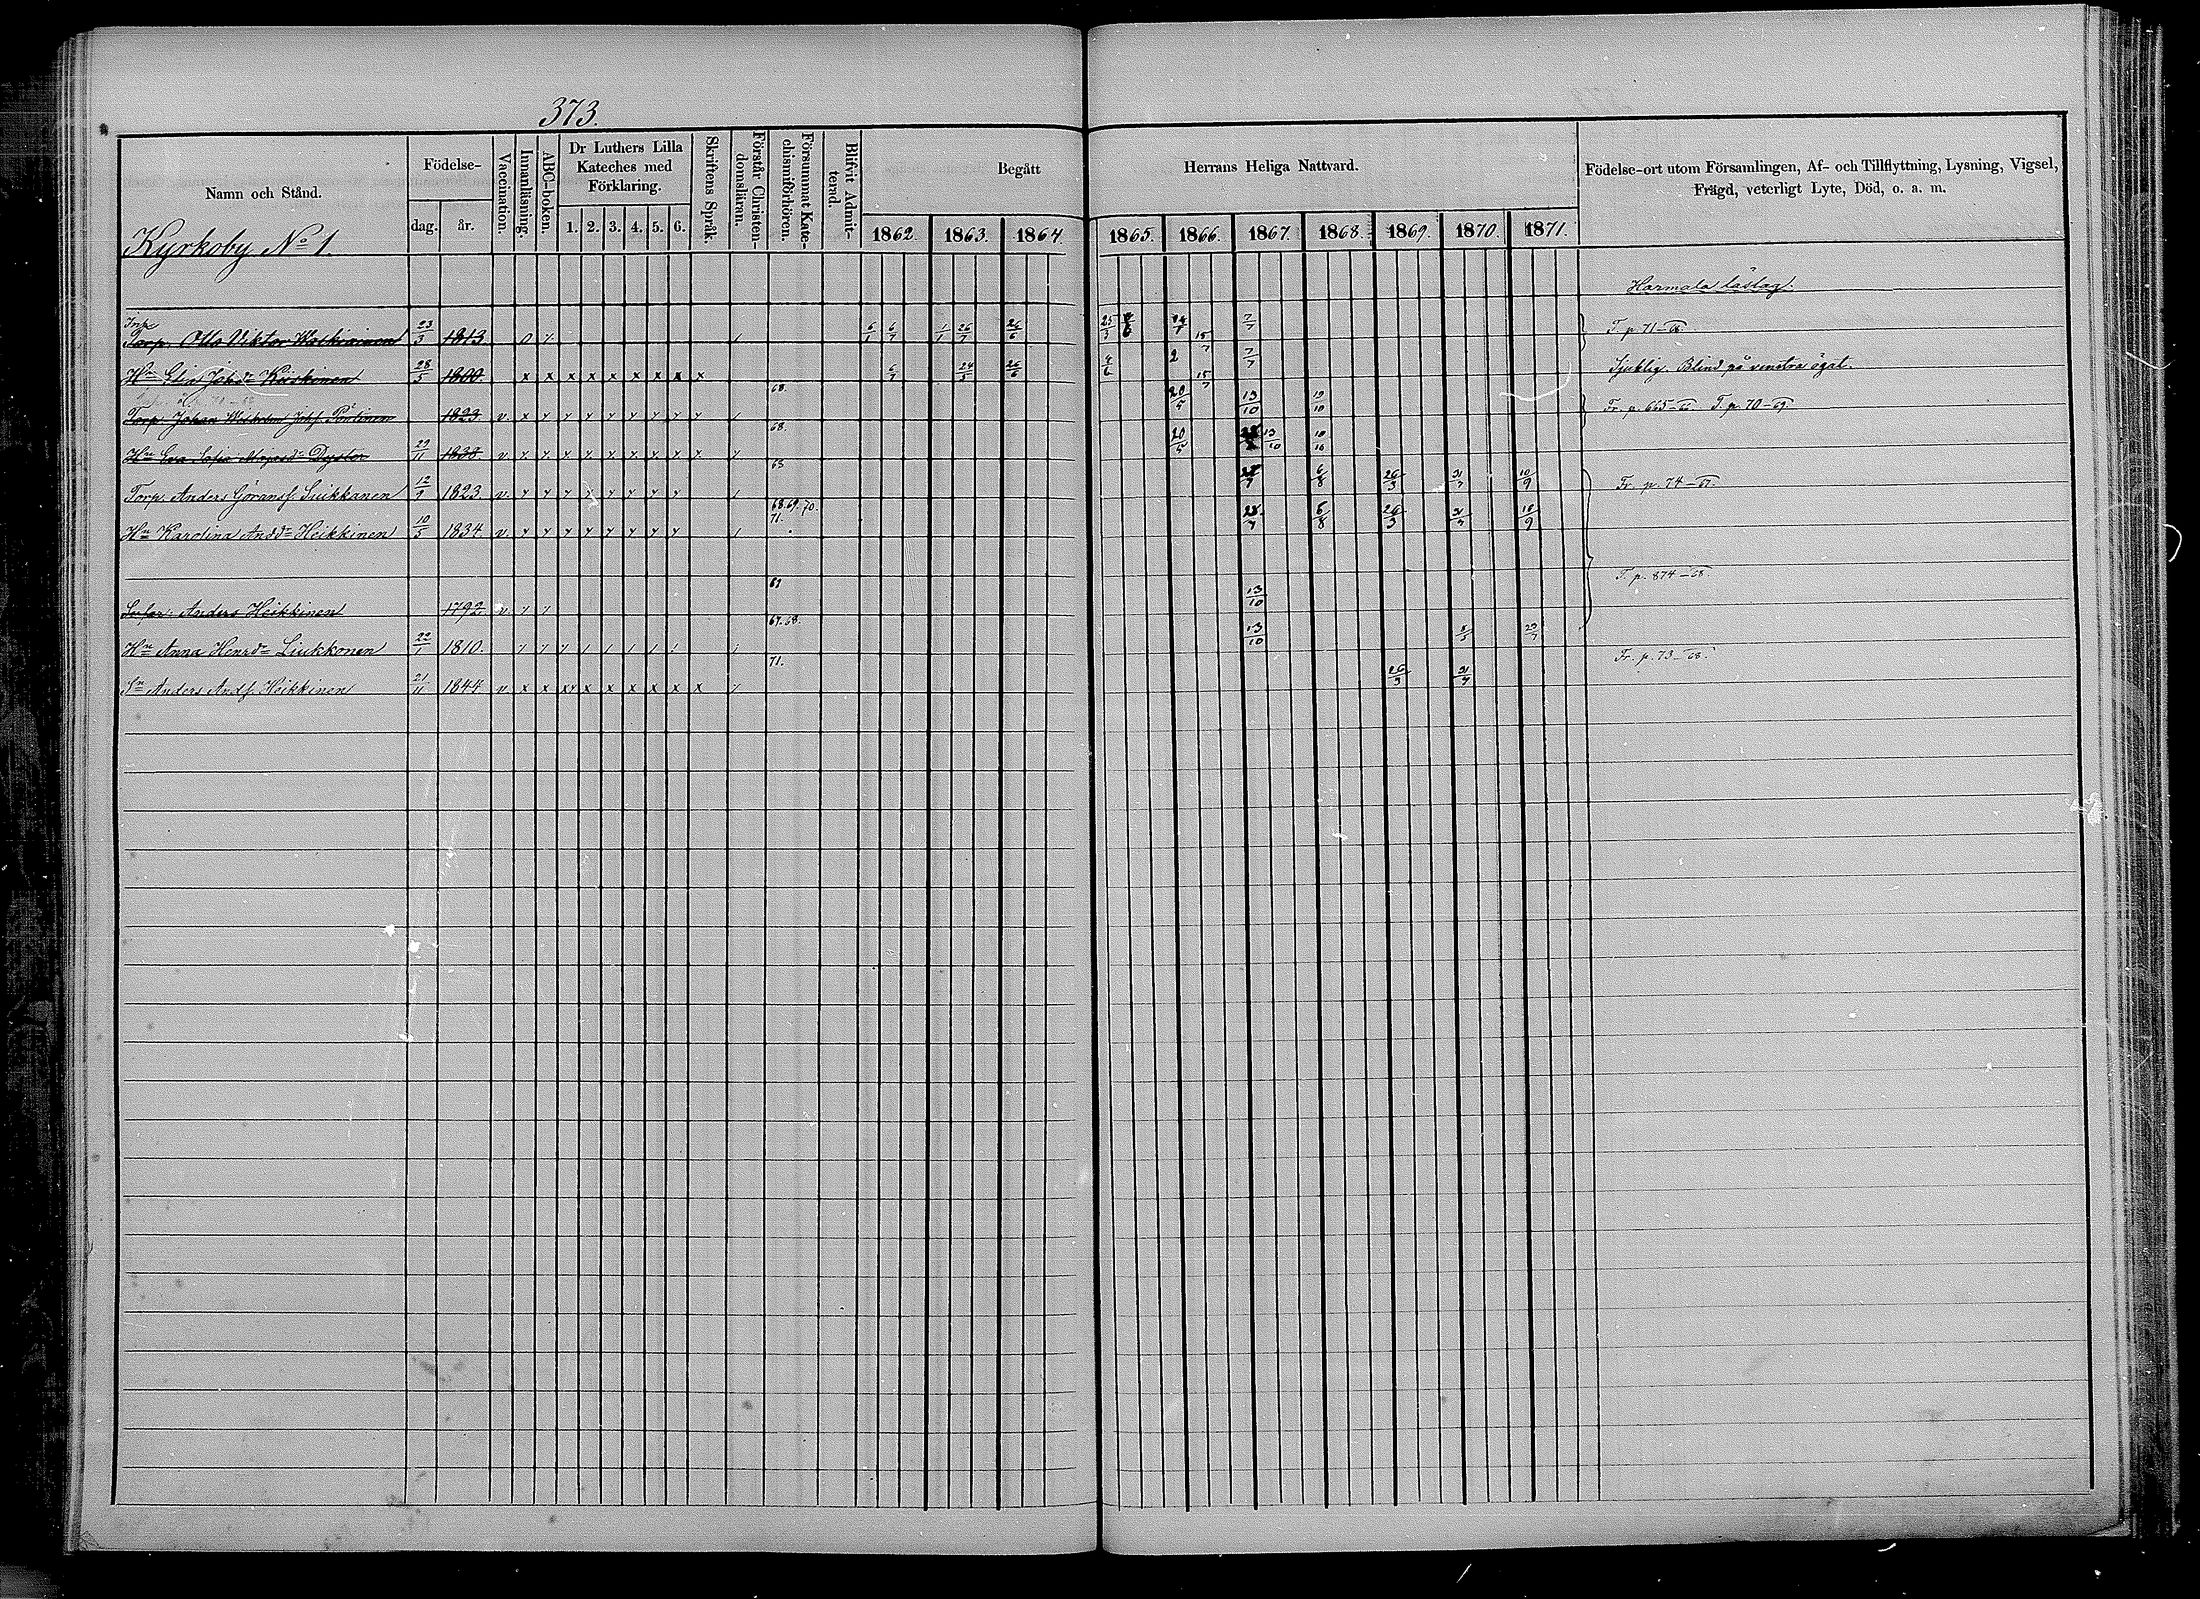 373.
Namn och Stånd.
Födelse-
dag. år.
Vaccination.
Innanläsning.
ABC-boken.
Dr Luthers Lilla Kateches med Förklaring.
1. 2. 3. 4. 5. 6.
Skriftens Språk.
Förstår Christen-domsläran.
Försummat Kate-chismiförhören.
Blifvit Admit-terad.
Begått Herrans Heliga Nattvard.
1862. 1863. 1864. 1865. 1866. 1867. 1868. 1869. 1870. 1871.
Födelse-ort utom Församlingen, Af- och Tillflyttning, Lysning, Vigsel,
Frägd, veterligt Lyte, Död, o. a. m.
Kyrkoby No 1.
Harmala läslag.
Inh.
Torp. Otto Viktor 23/3 1813 0 6/1 6/7 1/1 26/7 26/6 25/3 15/7 7/7 T. p. 71-68.
Hu Elsa Johdr Kiiskinen 28/5 1800. x x x x x x x x x 6/7 24/5 26/6 4/6 2 15/7 7/7 Sjuklig. Blind på venstra ögat.
Torp. Johan Wilhelm Johsf. Pöntinen 1823 v. 68. 20/5 13/10 19/10 Fr. p. 665-66 T. p. 70-69.
Hu Eva Sofia Dyster 29/11 1838. v. 68. 20/5 13/10 10/10
Torp. Anders Göransf. Liukkanen 12/9 1823. v. 68 6/8 26/3 31/7 10/9 Fr. p. 74-67.
Hu Karolina Andsdr Heikkinen 10/5 1834 v. 68.69.70. 71. 6/8 26/3 31/7 10/9
T. p. 874-68.
Anders Heikkinen 1792 v 67 13/10
Hu Anna Henrdr Liukkonen 22/1 1810. 67.68. 13/10 29/7
Fr. p. 73-68.
Sn Anders Andsf. Heikkinen 21/11 1844 v x x x x x x x x x 71. 26/3 31/7